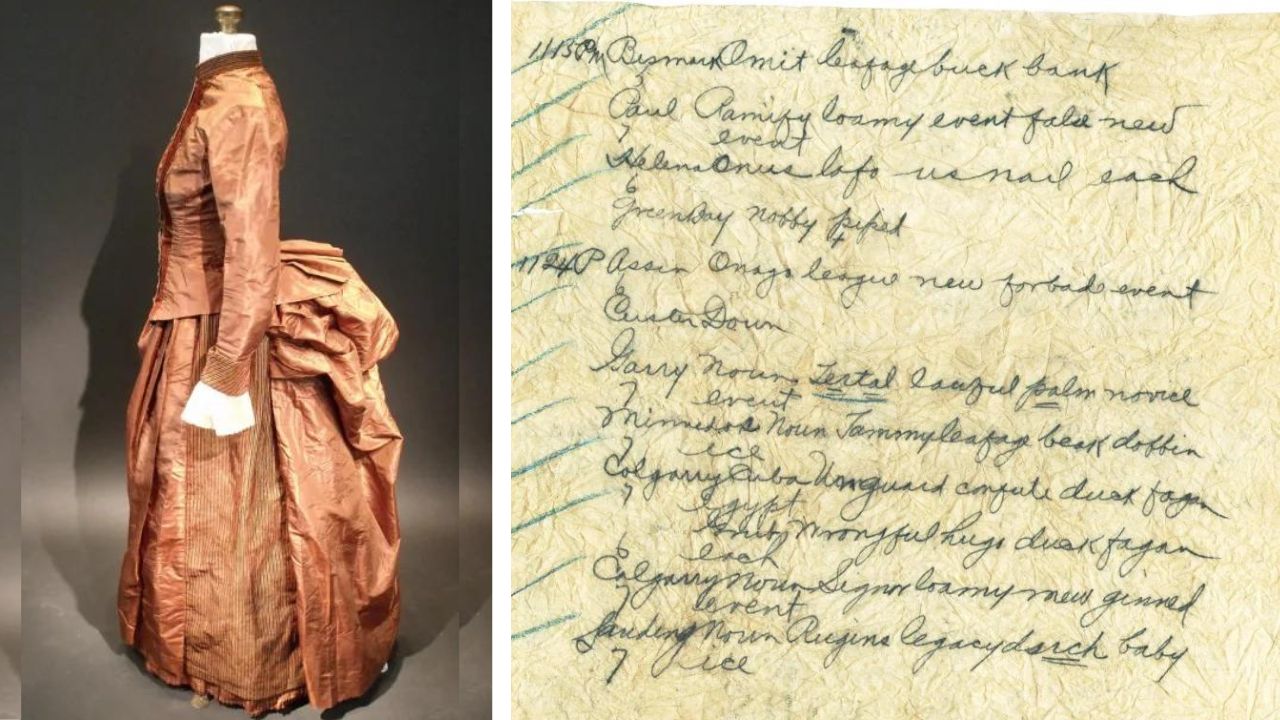 1113PM Bismark Omit leafage buck bank
Paul Ramify loamy event false new
7 event
Helena Onus lofo us nail each
E
GreenBay nobby piped
1124P Assin Onago league new forbade event
CusterDown
Garry Noun Tertal lawful palm novice
7 event
Minnedos Noun Jammy leafage beak dobbin
7 ice
Calgarry Cuba Unguard confute duck fagan
7 Egypt
Wrongful hugo duck fagan
E each
Calgarry Noun Signor loamy new ginned
7 event
Landing Noun Rugins legacy duck baby
7 ice